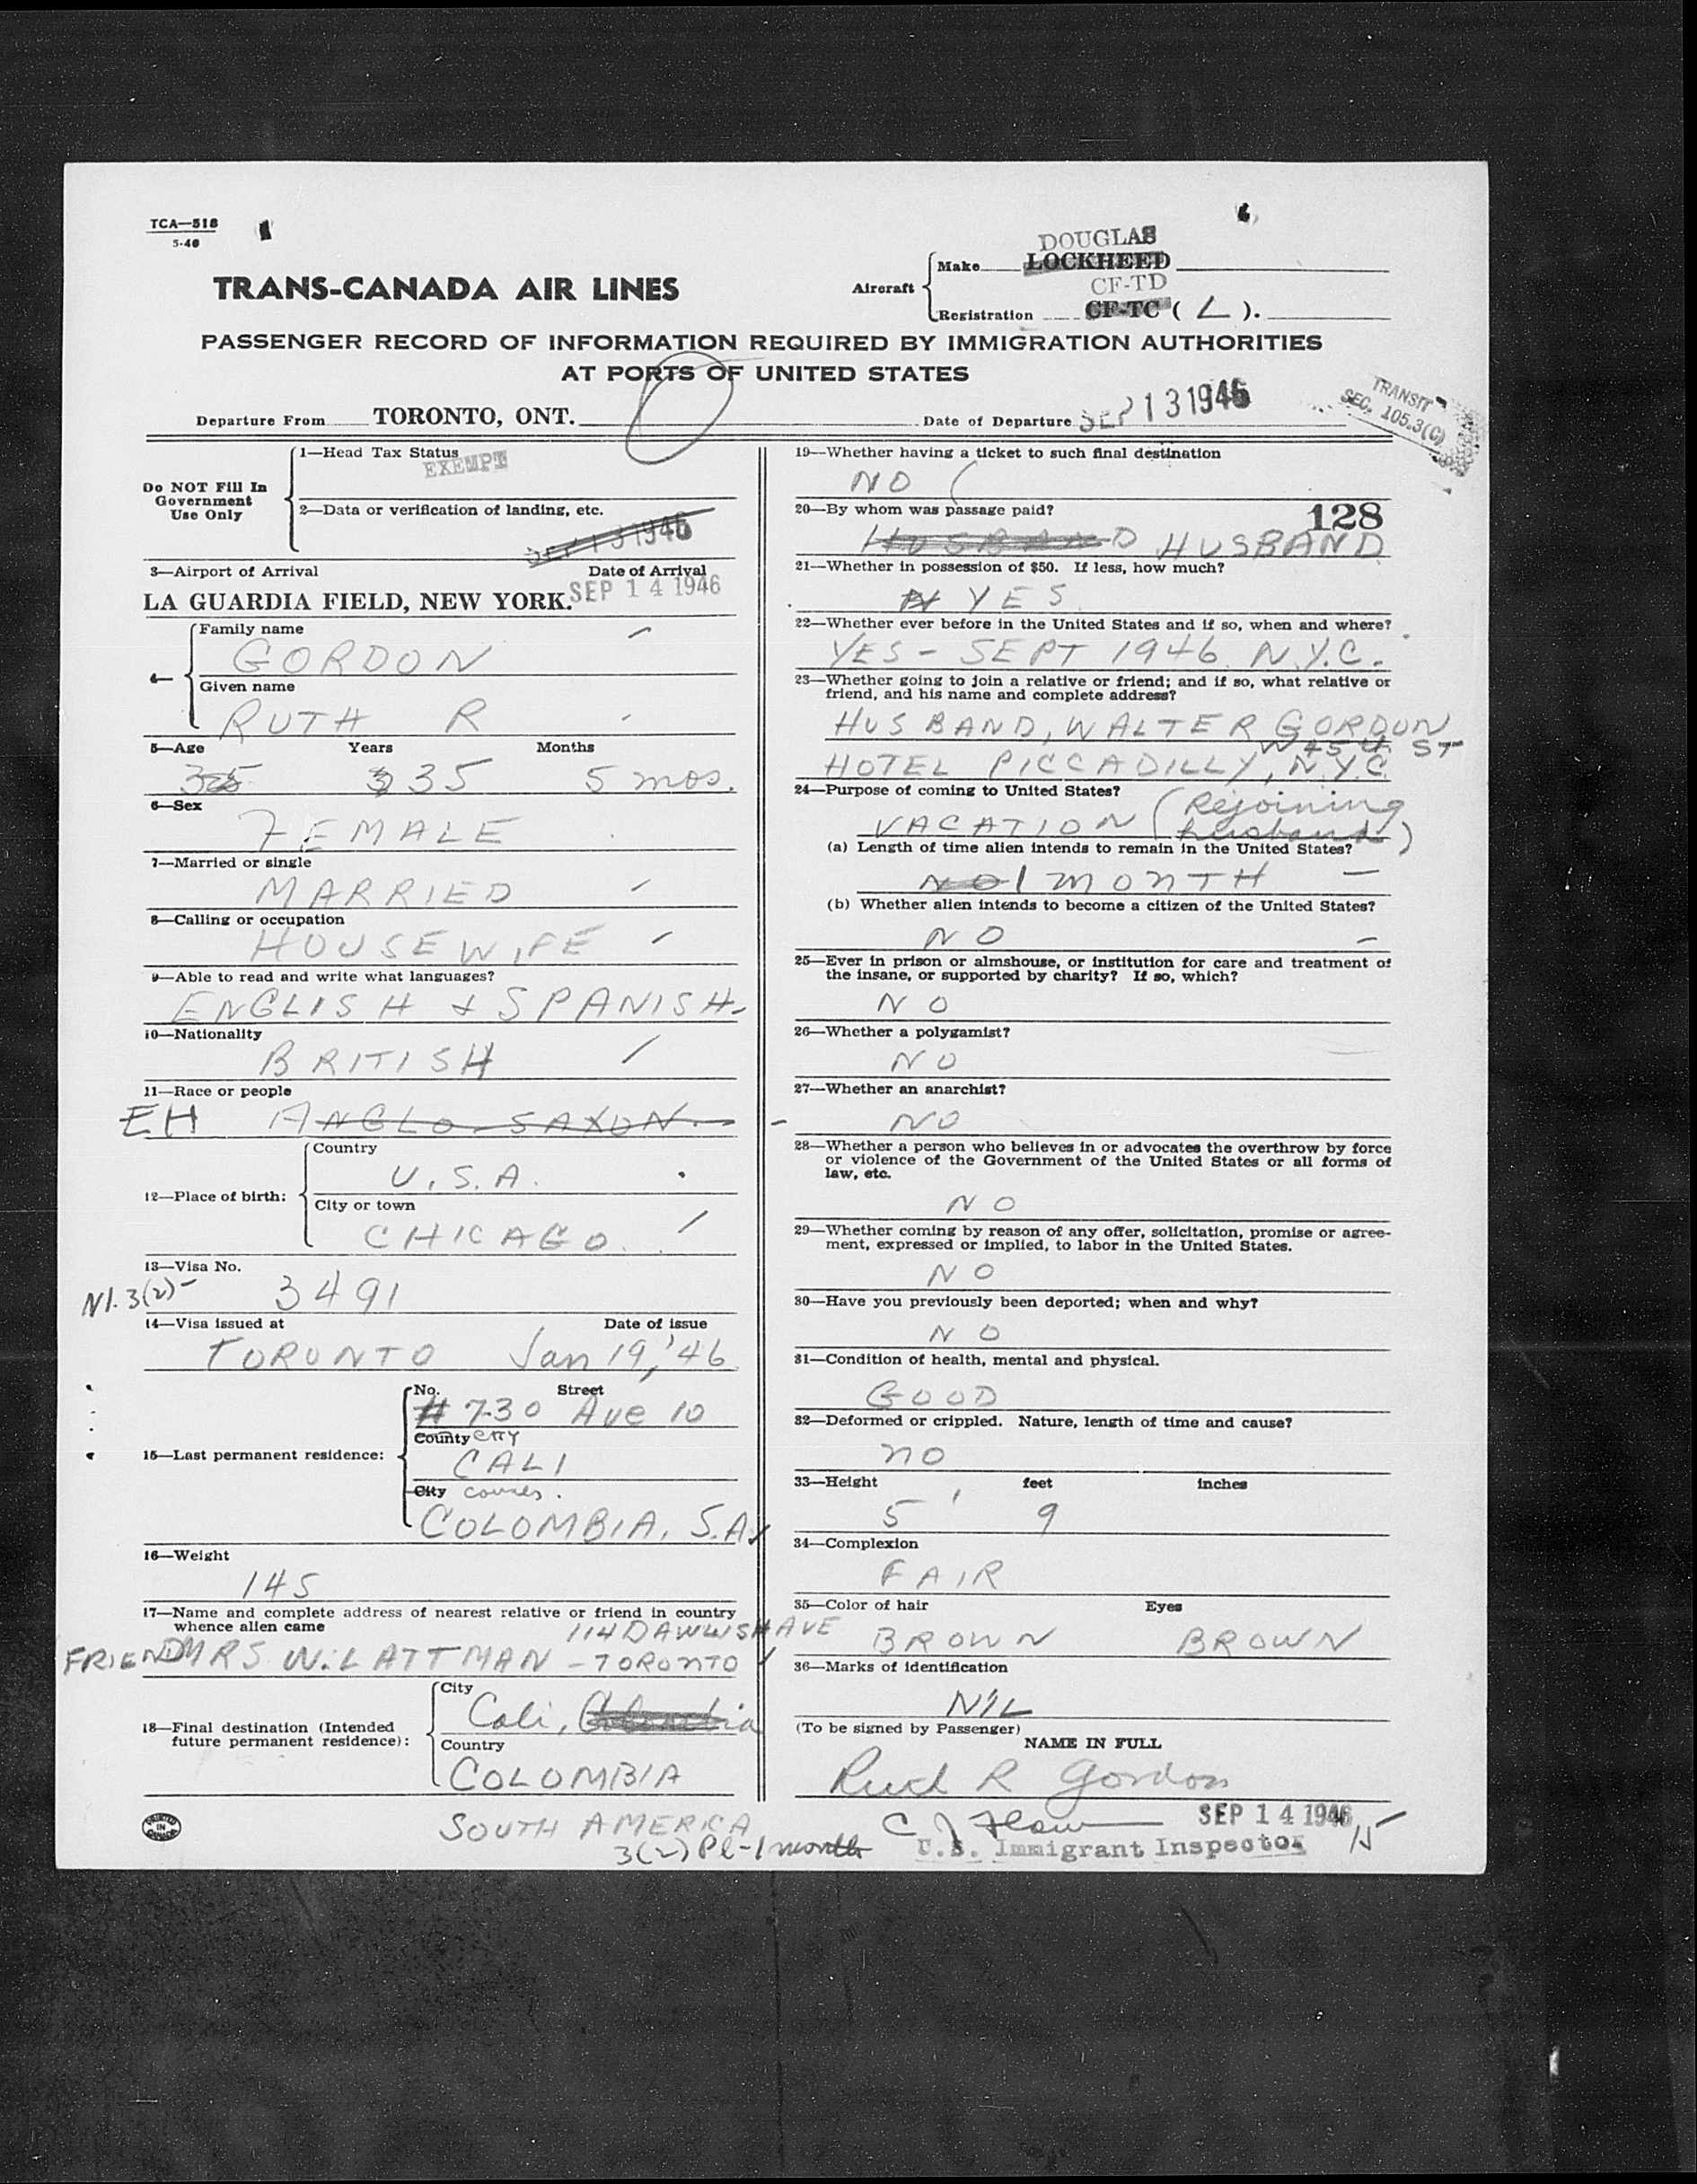 TCA—518
5-46
DOUGLAS
Make LOCKHEED
TRANS-CANADA AIR LINES
Aircraft
CF-TD
Registration CF-TC ( L ).
PASSENGER RECORD OF INFORMATION REQUIRED BY IMMIGRATION AUTHORITIES
AT PORTS OF UNITED STATES
Departure From TORONTO, ONT.
Date of Departure SEP 13 1946
TRANSIT
SEC. 105.3(C)
1—Head Tax Status
EXEMPT
Do NOT Fill In
Government
Use Only
2—Data or verification of landing, etc.
SEP 13 1946
3—Airport of Arrival Date of Arrival
LA GUARDIA FIELD, NEW YORK. SEP 14 1946
4—
Family name
GORDON
Given name
RUTH R
5—Age Years Months
35 35 5 mos.
6—Sex
FEMALE
7—Married or single
MARRIED
8—Calling or occupation
HOUSEWIFE
9—Able to read and write what languages?
ENGLISH & SPANISH-
10—Nationality
BRITISH
11—Race or people
EH ANGLO-SAXON
12—Place of birth:
Country
U.S.A.
City or town
CHICAGO
13—Visa No.
NI. 3(2)- 3491
14—Visa issued at Date of issue
TORONTO Jan 19,'46
15—Last permanent residence:
No. Street
# 7-30 Ave 10
County CITY
CALI
City
COLOMBIA, S.A.
16—Weight
145
17—Name and complete address of nearest relative or friend in country
whence alien came
114 DAWLISH AVE
FRIEND MRS W. LATTMAN - TORONTO
18—Final destination (Intended
future permanent residence):
City
Cali, Colombia
Country
COLOMBIA
SOUTH AMERICA
3(2) Pl-1 month
PRINTED
IN
CANADA
19—Whether having a ticket to such final destination
NO
20—By whom was passage paid?
128
HUSBAND HUSBAND
21—Whether in possession of $50. If less, how much?
YES
22—Whether ever before in the United States and if so, when and where?
YES - SEPT 1946 N.Y.C.
23—Whether going to join a relative or friend; and if so, what relative or
friend, and his name and complete address?
HUSBAND, WALTER GORDON
W 45th ST
HOTEL PICCADILLY, N.Y.C
24—Purpose of coming to United States?
VACATION (Rejoining
husband)
(a) Length of time alien intends to remain in the United States?
NO 1 MONTH
(b) Whether alien intends to become a citizen of the United States?
NO
25—Ever in prison or almshouse, or institution for care and treatment of
the insane, or supported by charity? If so, which?
NO
26—Whether a polygamist?
NO
27—Whether an anarchist?
NO
28—Whether a person who believes in or advocates the overthrow by force
or violence of the Government of the United States or all forms of
law, etc.
NO
29—Whether coming by reason of any offer, solicitation, promise or agree-
ment, expressed or implied, to labor in the United States.
NO
30—Have you previously been deported; when and why?
NO
31—Condition of health, mental and physical.
GOOD
32—Deformed or crippled. Nature, length of time and cause?
no
33—Height feet inches
5' 9
34—Complexion
FAIR
35—Color of hair Eyes
BROWN BROWN
36—Marks of identification
NIL
(To be signed by Passenger)
NAME IN FULL
Ruth R Gordon
SEP 14 1946
U.S. Immigrant Inspector
15